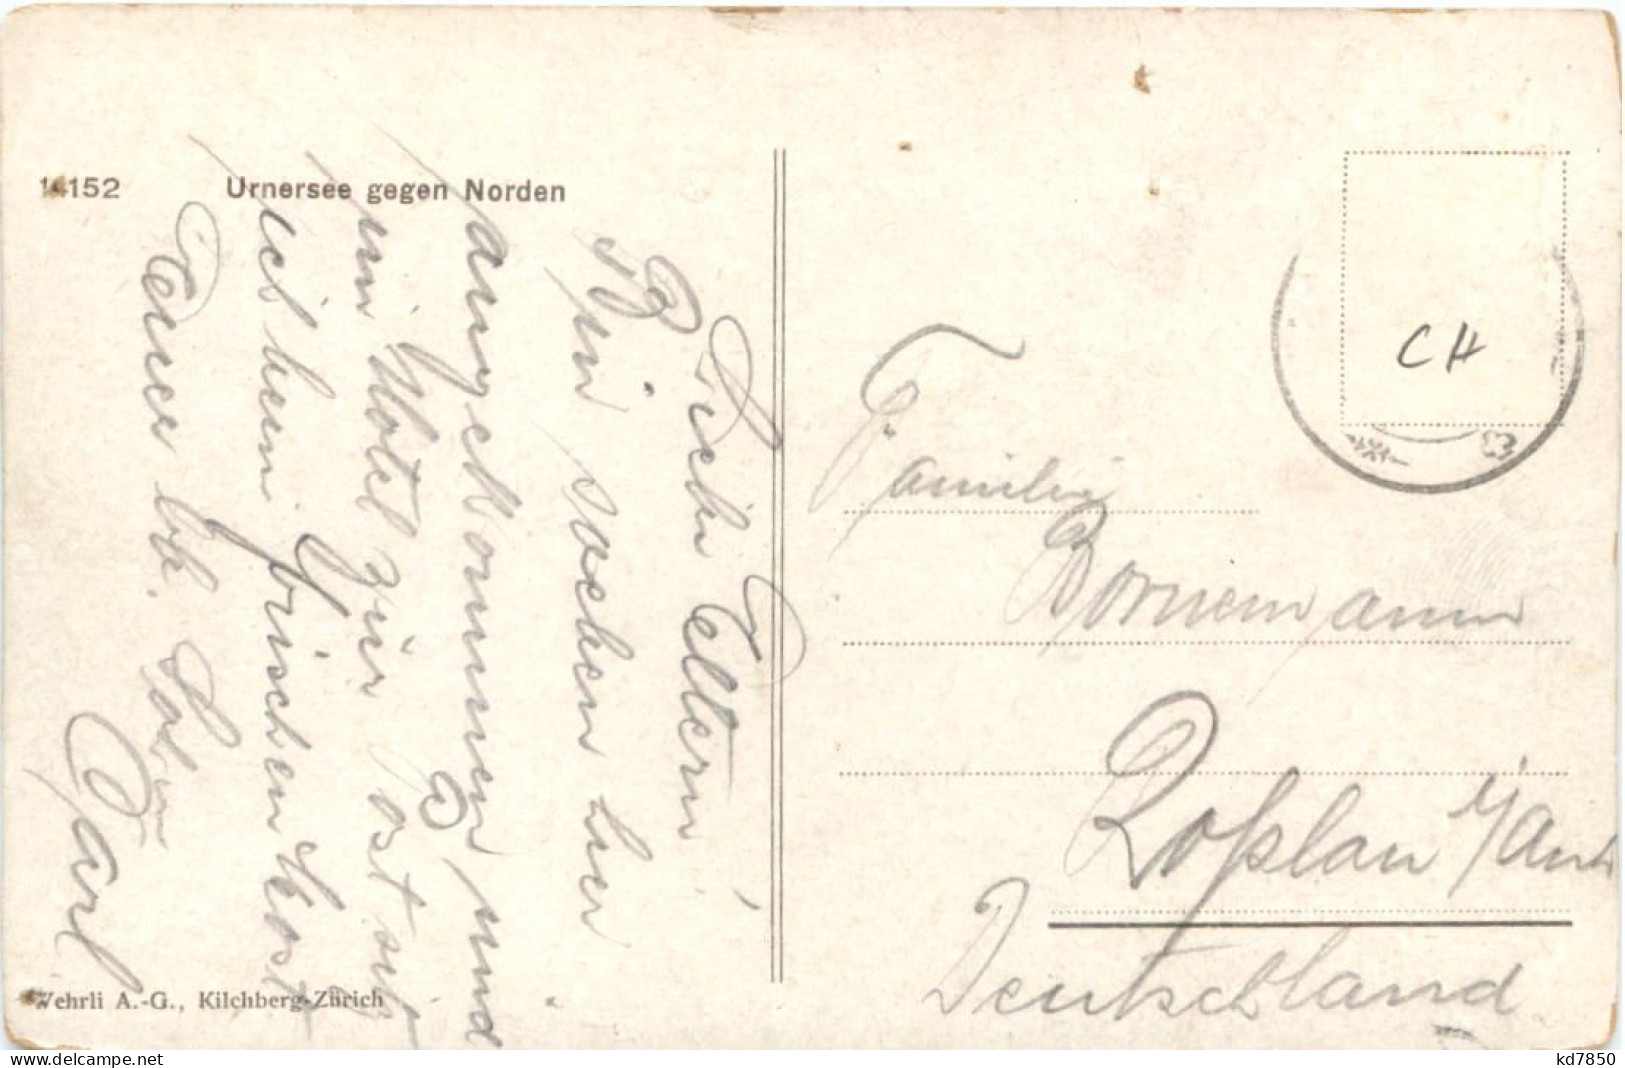 14152 Urnersee gegen Norden
Lieb. Eltern.
Bin soeben hier
angekommen, und
im Hotel zur Post
ich beim frischen Most
Euer lb. Sohn
Carl
Wehrli A.-G., Kilchberg-Zürich
CH
Familie
Bornemann
Roßlau i/Anh
Deutschland.
www.delcampe.net
kd7850